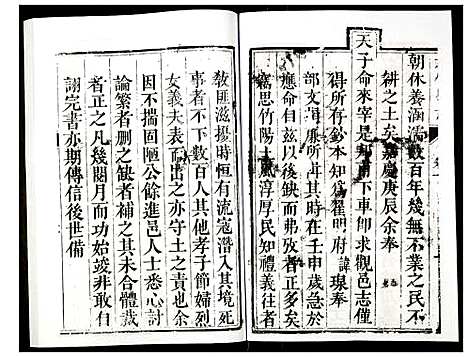 朝休養涵濡數百年幾無不業之民不
耕之土矣嘉慶庚辰余奉
天子命來宰是邦甫下車即求觀邑志僅
得所存鈔本知爲翟明府諱琛奉
部文海取所者時在壬申歲急於
應命自茲以後缺而弗攷者正多矣
嘉思竹陽土風淳厚民知禮義往者
教匪滋擾時恒有流寇潛入其境死
事者不下數百人其他孝子節婦烈
女義夫表而出之亦守土之責也余
因不揣固陋公餘進邑人士悉心討
論繁者删之缺者補之其未合體裁
者正之凡幾閱月而功始竣非敢自
詡完書亦期傳信後世備